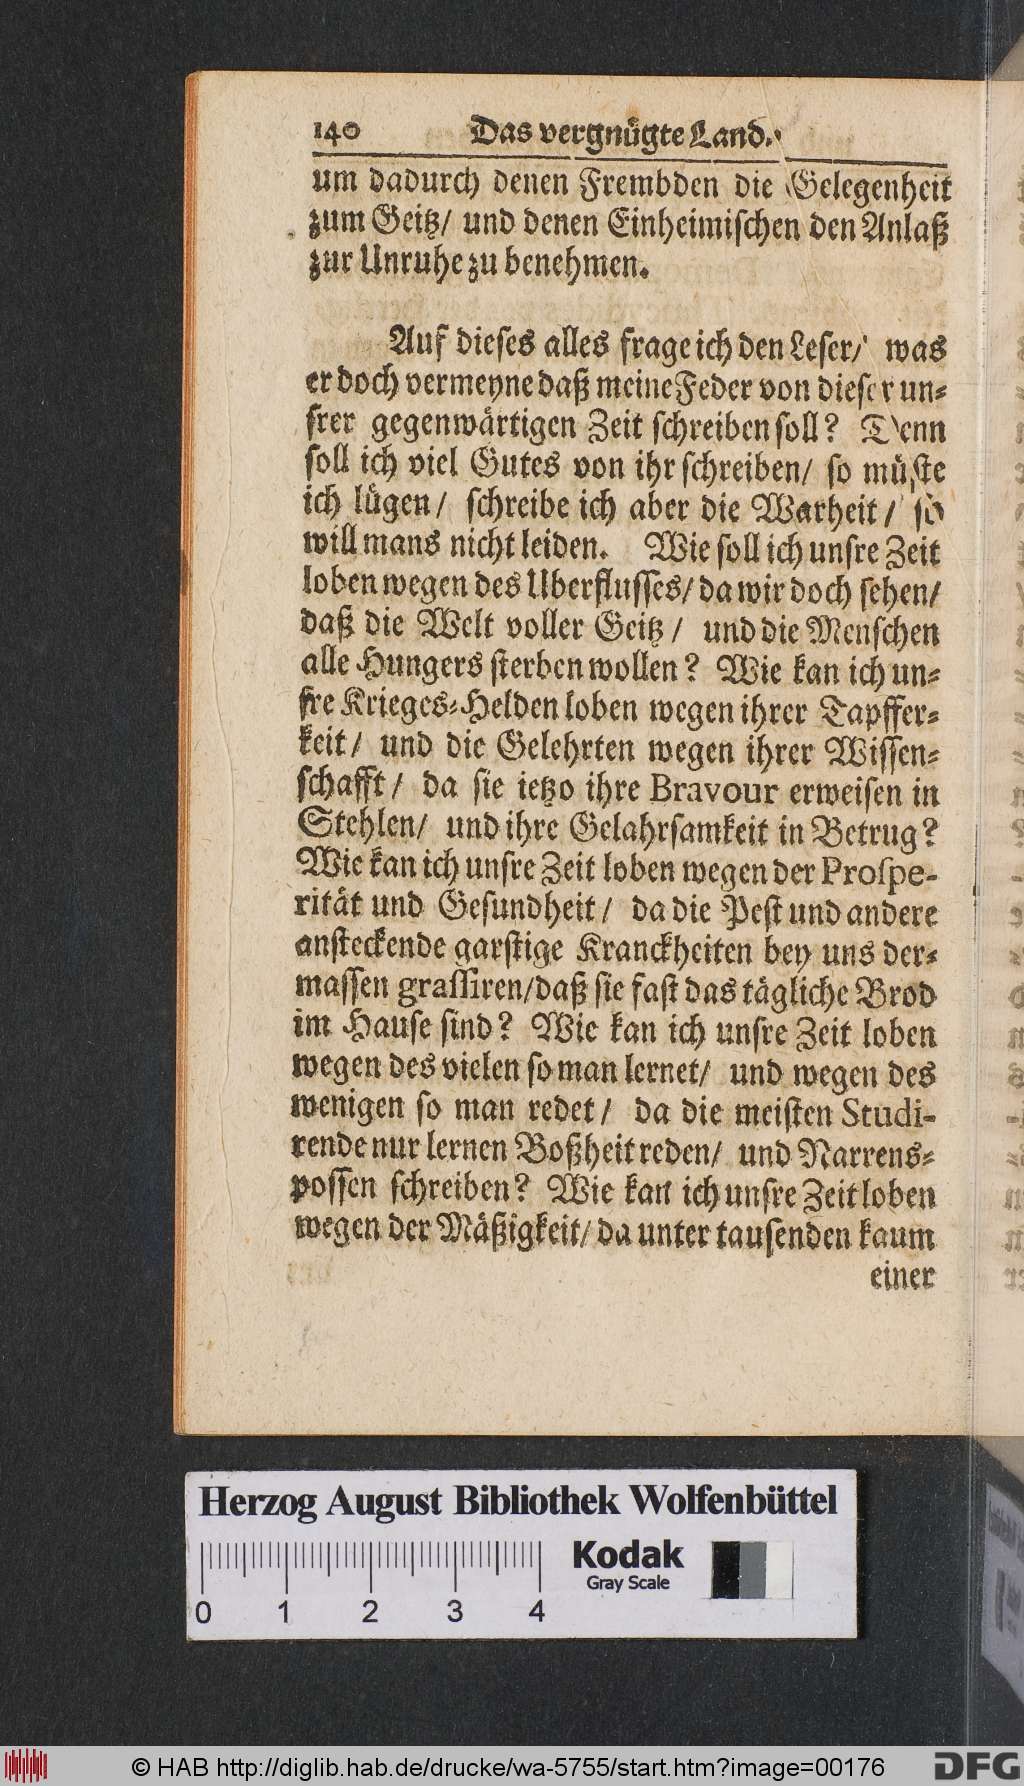 140 Das vergnügte Land.
um dadurch denen Frembden die Gelegenheit
zum Geitz/ und denen Einheimischen den Anlaß
zur Unruhe zu benehmen.
Auf dieses alles frage ich den Leser/ was
er doch vermeyne daß meine Feder von dieser un-
srer gegenwärtigen Zeit schreiben soll? Denn
soll ich viel Gutes von ihr schreiben/ so müste
ich lügen/ schreibe ich aber die Warheit/ so
will mans nicht leiden. Wie soll ich unsre Zeit
loben wegen des Uberflusses/ da wir doch sehen/
daß die Welt voller Geitz/ und die Menschen
alle Hungers sterben wollen? Wie kan ich un-
sre Krieges-Helden loben wegen ihrer Tapffer-
keit/ und die Gelehrten wegen ihrer Wissen-
schafft/ da sie ietzo ihre Bravour erweisen in
Stehlen/ und ihre Gelahrsamkeit in Betrug?
Wie kan ich unsre Zeit loben wegen der Prospe-
rität und Gesundheit/ da die Pest und andere
ansteckende garstige Kranckheiten bey uns der-
massen grassiren/ daß sie fast das tägliche Brod
im Hause sind? Wie kan ich unsre Zeit loben
wegen des vielen so man lernet/ und wegen des
wenigen so man redet/ da die meisten Studi-
rende nur lernen Boßheit reden/ und Narrens-
possen schreiben? Wie kan ich unsre Zeit loben
wegen der Mäßigkeit/ da unter tausenden kaum
einer
Herzog August Bibliothek Wolfenbüttel
Kodak
Gray Scale
0 1 2 3 4
© HAB http://diglib.hab.de/drucke/wa-5755/start.htm?image=00176
DFG